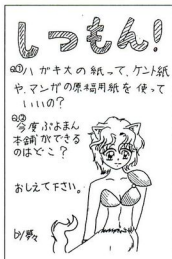 しつもん!
Q① ハガキ大の紙って、ケント紙
や、マンガの原稿用紙を使って
いいの?
Q② 今度ぷよまん
本舗ができる
のはどこ?
おしえて下さい。
by 夢々